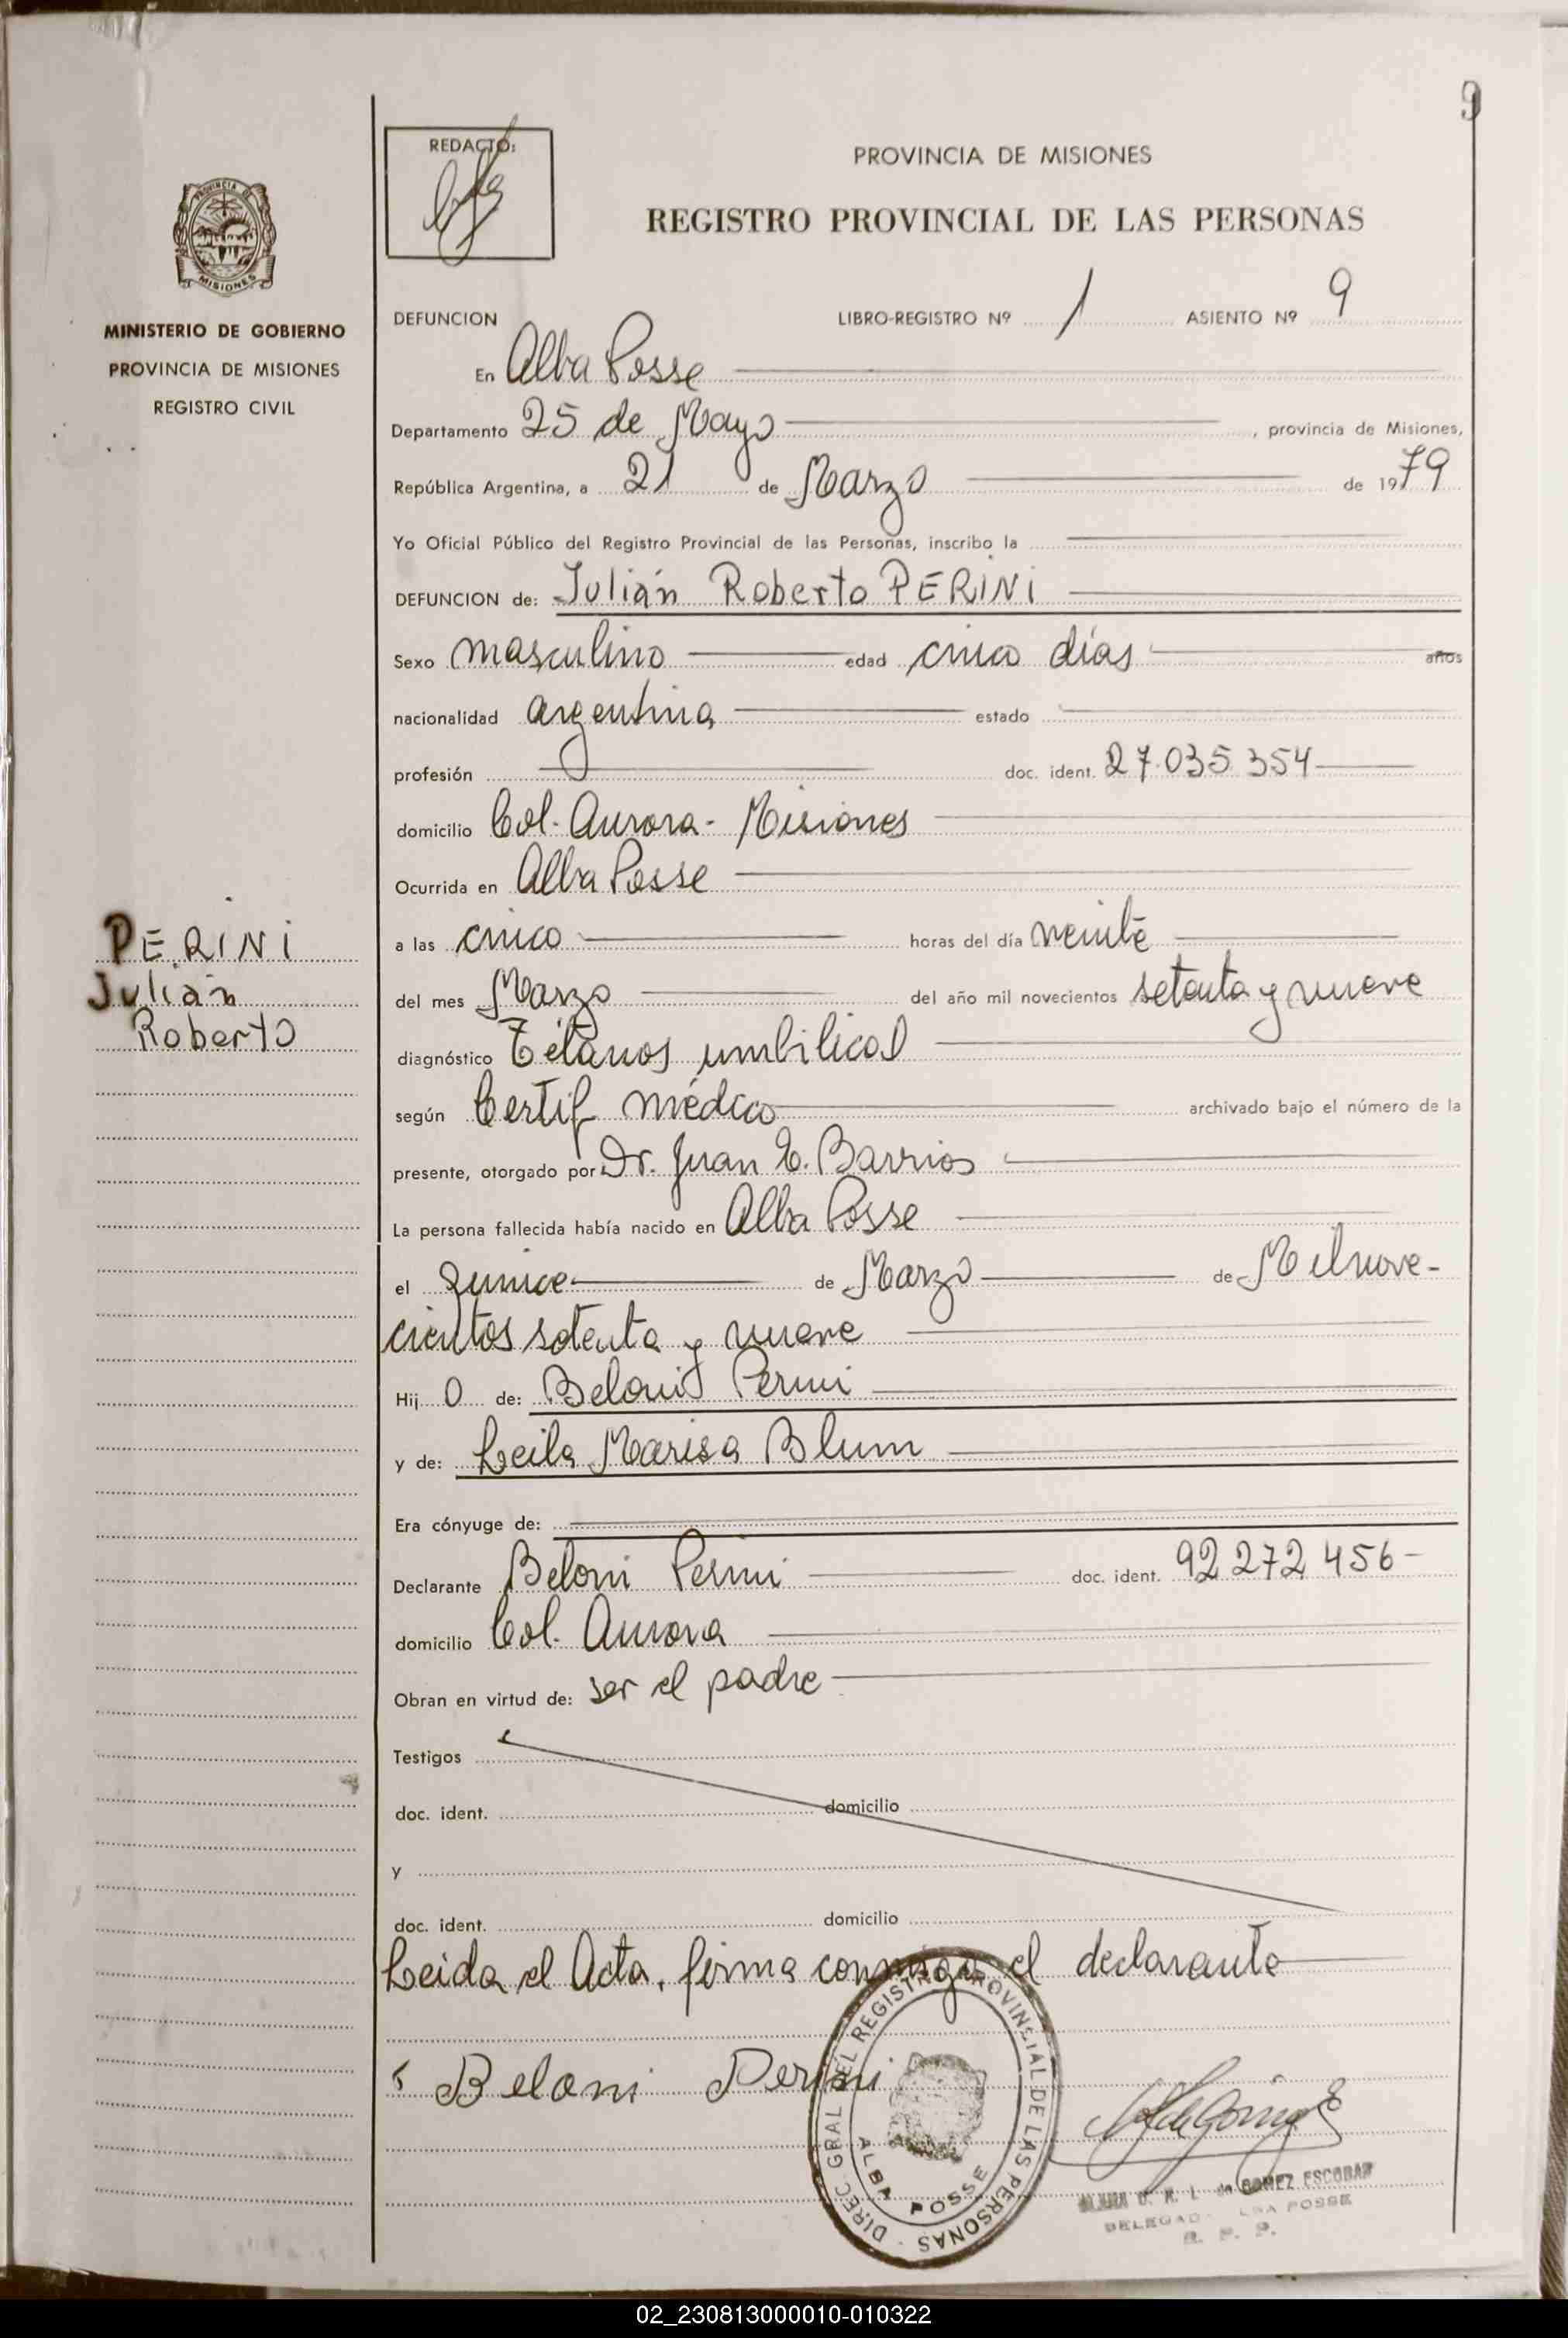 9
REDACTO:
PROVINCIA DE MISIONES
REGISTRO PROVINCIAL DE LAS PERSONAS
PROVINCIA DE
MISIONES
MINISTERIO DE GOBIERNO
PROVINCIA DE MISIONES
REGISTRO CIVIL
DEFUNCION LIBRO-REGISTRO Nº 1 ASIENTO Nº 9
En Alba Posse
Departamento 25 de Mayo, provincia de Misiones,
República Argentina, a 21 de Marzo de 1979
Yo Oficial Público del Registro Provincial de las Personas, inscribo la
DEFUNCION de: Julián Roberto PERINI
Sexo masculino edad cinco días años
nacionalidad argentina estado
profesión doc. ident. 27.035.354
domicilio Col. Aurora - Misiones
Ocurrida en Alba Posse
PERINI
Julián
Roberto
a las cinco horas del día veinte
del mes Marzo del año mil novecientos setenta y nueve
diagnóstico Tétanos umbilical
según Certif médico archivado bajo el número de la
presente, otorgado por Dr. Juan E. Barrios
La persona fallecida había nacido en Alba Posse
el Quince de Marzo de Milnove-
cientos setenta y nueve
Hijo de: Beloni Perini
y de: Leila Marisa Blum
Era cónyuge de:
Declarante Beloni Perini doc. ident. 92 272 456-
domicilio Col. Aurora
Obran en virtud de: ser el padre
Testigos
doc. ident. domicilio
y
doc. ident. domicilio
Leida el Acta, firma conmigo el declarante
Beloni Perini
DIREC. GRAL DEL REGISTRO PROVINSIAL DE LAS PERSONAS
ALBA POSSE
de GOMEZ ESCOBAR
POSSE
R. P. P.
02_230813000010-010322